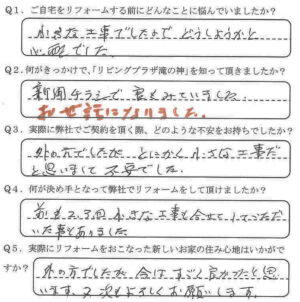 Q1. ご自宅をリフォームする前にどんなことに悩んでいましたか?
小さな工事でしたので どうしようかと
心配でした
Q2. 何がきっかけで、「リビングプラザ滝の神」を知って頂きましたか?
新聞チラシで 見てみていました。
お世話になりました。
Q3. 実際に弊社でご契約を頂く際、どのような不安をお持ちでしたか?
外の方でしたが とにかく小さな工事だ
と思いまして 不安でした。
Q4. 何が決め手となって弊社でリフォームをして頂けましたか?
前も 2、3回 小さな工事も
た事もありました
Q5. 実際にリフォームをおこなった新しいお家の住み心地はいかがで
すか?
外の方でしたが、今はすごく良かったと思
います。又次もよろしくお願いします。